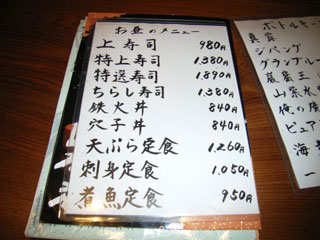 お昼のメニュー
上寿司 980円
特上寿司 1,380円
特選寿司 1,890円
ちらし寿司 1,380円
鉄火丼 840円
穴子丼 840円
天ぷら定食 1,260円
刺身定食 1,050円
煮魚定食 950円
ボトルキー
真露
ジパング
グランブルー
山紫水
俺の
ピュア
海
一